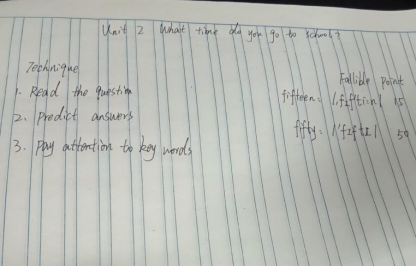 Unit 2 What time do you go to school?
Technique
1. Read the question
2. Predict answers
3. Pay attention to key words
Fallible Point
fifteen: /ˌfɪfˈtiːn/ 15
fifty: /ˈfɪftɪ/ 50